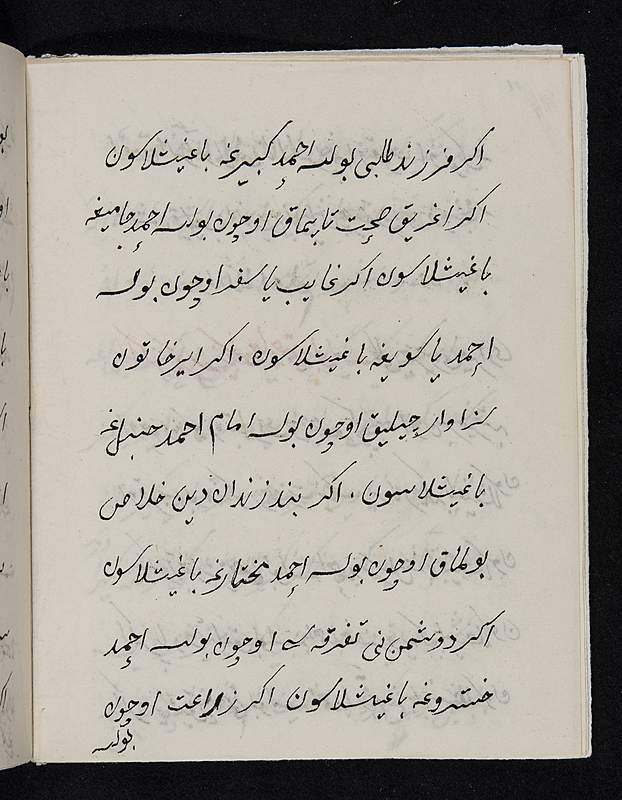 اکر فرزند طلبی بولسه احمد کبیرغه باغیشلاسون
اکر اغریق صحت تابماق اوچون بولسه احمد جامیغه
باغیشلاسون اکر غایب یا سفر اوچون بولسه
احمد یاسویغه باغیشلاسون. اکر ایر خاتون
سزاوارچیلیق اوچون بولسه امام احمد حنبلغه
باغیشلاسون. اکر بند زندان دین خلاص
بولماق اوچون بولسه احمد مختارغه باغیشلاسون
اکر دوشمن نی تفرقه سی اوچون بولسه احمد
خسروغه باغیشلاسون. اکر زراعت اوچون
بولسه